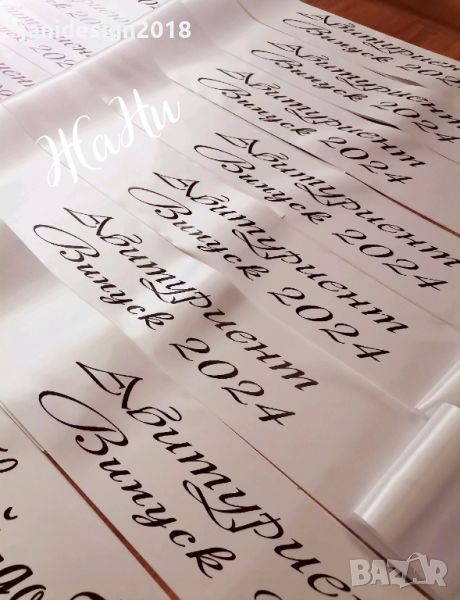 janidesign2018
ЖаНи
Абитуриент
Випуск 2024
Абитуриент
Випуск 2024
Абитуриент
Випуск 2024
Абитуриент
Випуск 2024
Абитуриент
Випуск 2024
Абитуриент
Випуск 2024
Абитуриент
Випуск 2
BAZAR